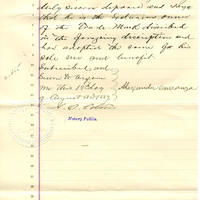 duly sworn deposes and says
that he is the exclusive owner
of the Trade Mark described
in the foregoing description and
has adopted the same for his
sole use and benefit.
Subscribed and
sworn to before
me this 19th day
of August AD 1887
Alexander Carranza
Notary Public.